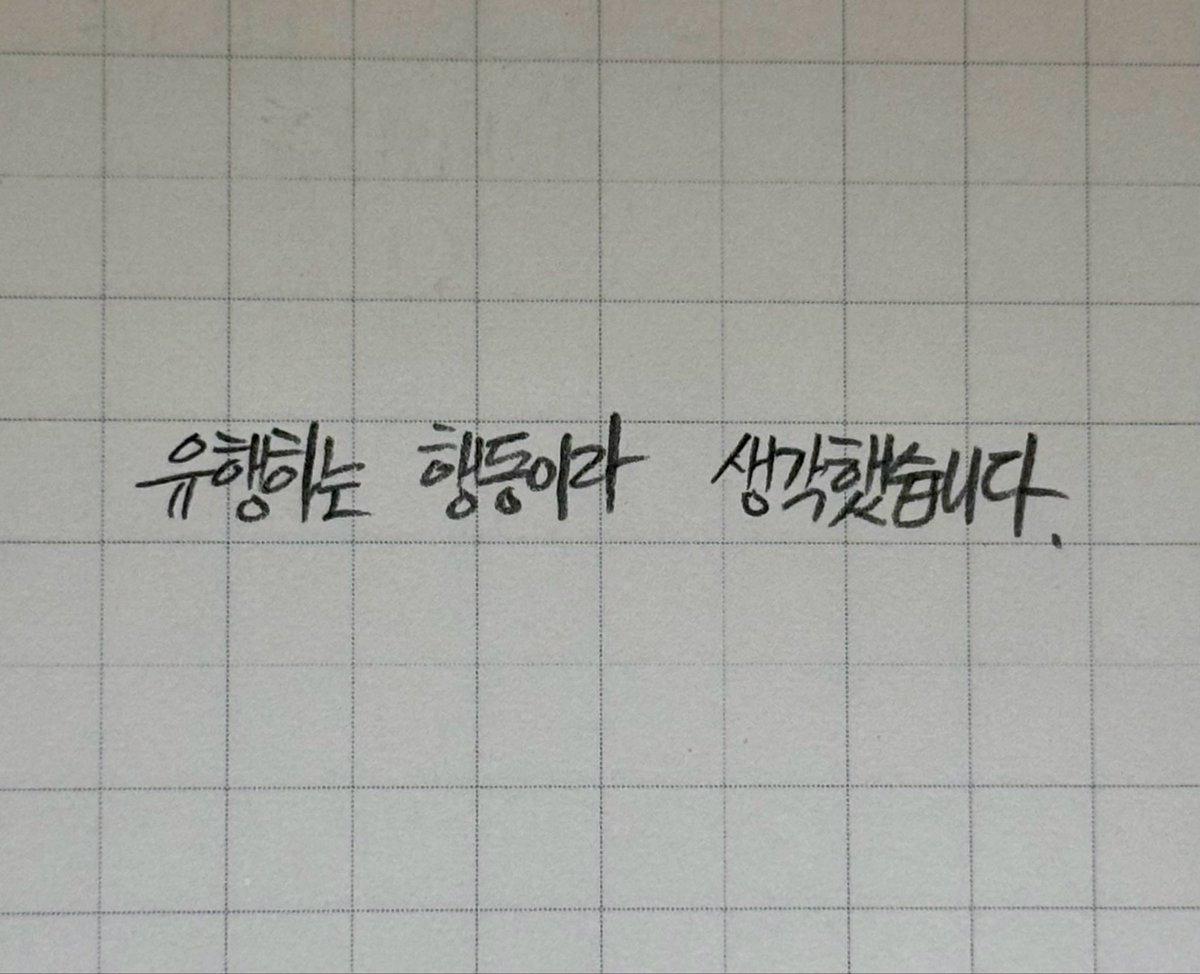 유행하는 행동이라 생각했습니다.